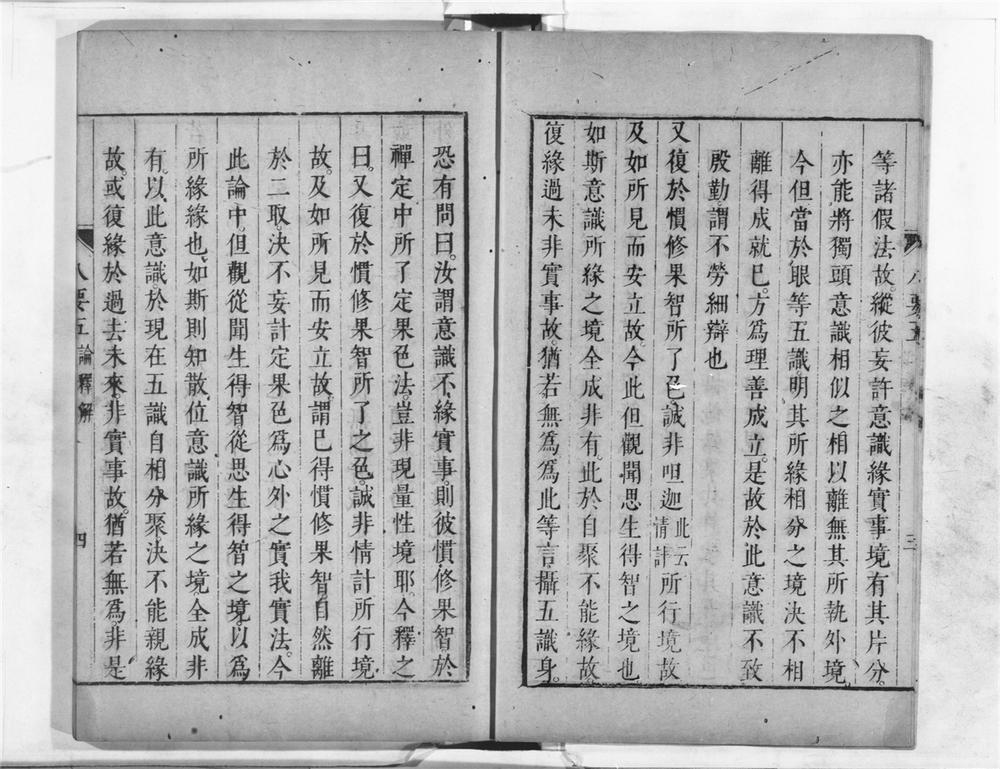 八要五
三
等諸假法故。縱彼妄許意識緣實事境有其片分。
亦能將獨頭意識相似之相以離無其所執外境。
今但當於眼等五識明其所緣相分之境決不相
離得成就已。方為理善成立。是故於此意識不致
殷勤。謂不勞細辯也
又復於慣修果智所了色。誠非呾迦此云情計所行境故
及如所見而安立故。今此但觀聞思生得智之境也
如斯意識所緣之境全成非有。此於自聚不能緣故
復緣過未非實事故。猶若無為。為此等言。攝五識身。
恐有問曰。汝謂意識不緣實事。則彼慣修果智於
禪定中所了定果色法。豈非現量性境耶。今釋之
曰。又復於慣修果智所了之色。誠非情計所行境
故。及如所見而安立故。謂已得慣修果智。自然離
於二取。決不妄計定果色為心外之實我實法。今
此論中。但觀從聞生得智從思生得智之境。以為
所緣緣也。如斯則知散位意識所緣之境全成非
有。以此意識於現在五識自相分聚決不能親緣
故。或復緣於過去未來。非實事故。猶若無為。非是
八要五 論釋解
四